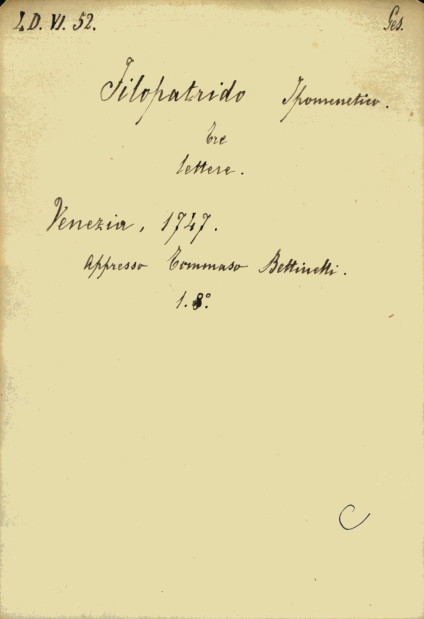 L D. VI. 52. Ges.
Filopatrido Ipomenetico.
Tre
lettere.
Venezia, 1747.
Appresso Tommaso Bettinelli.
1. 8°
C